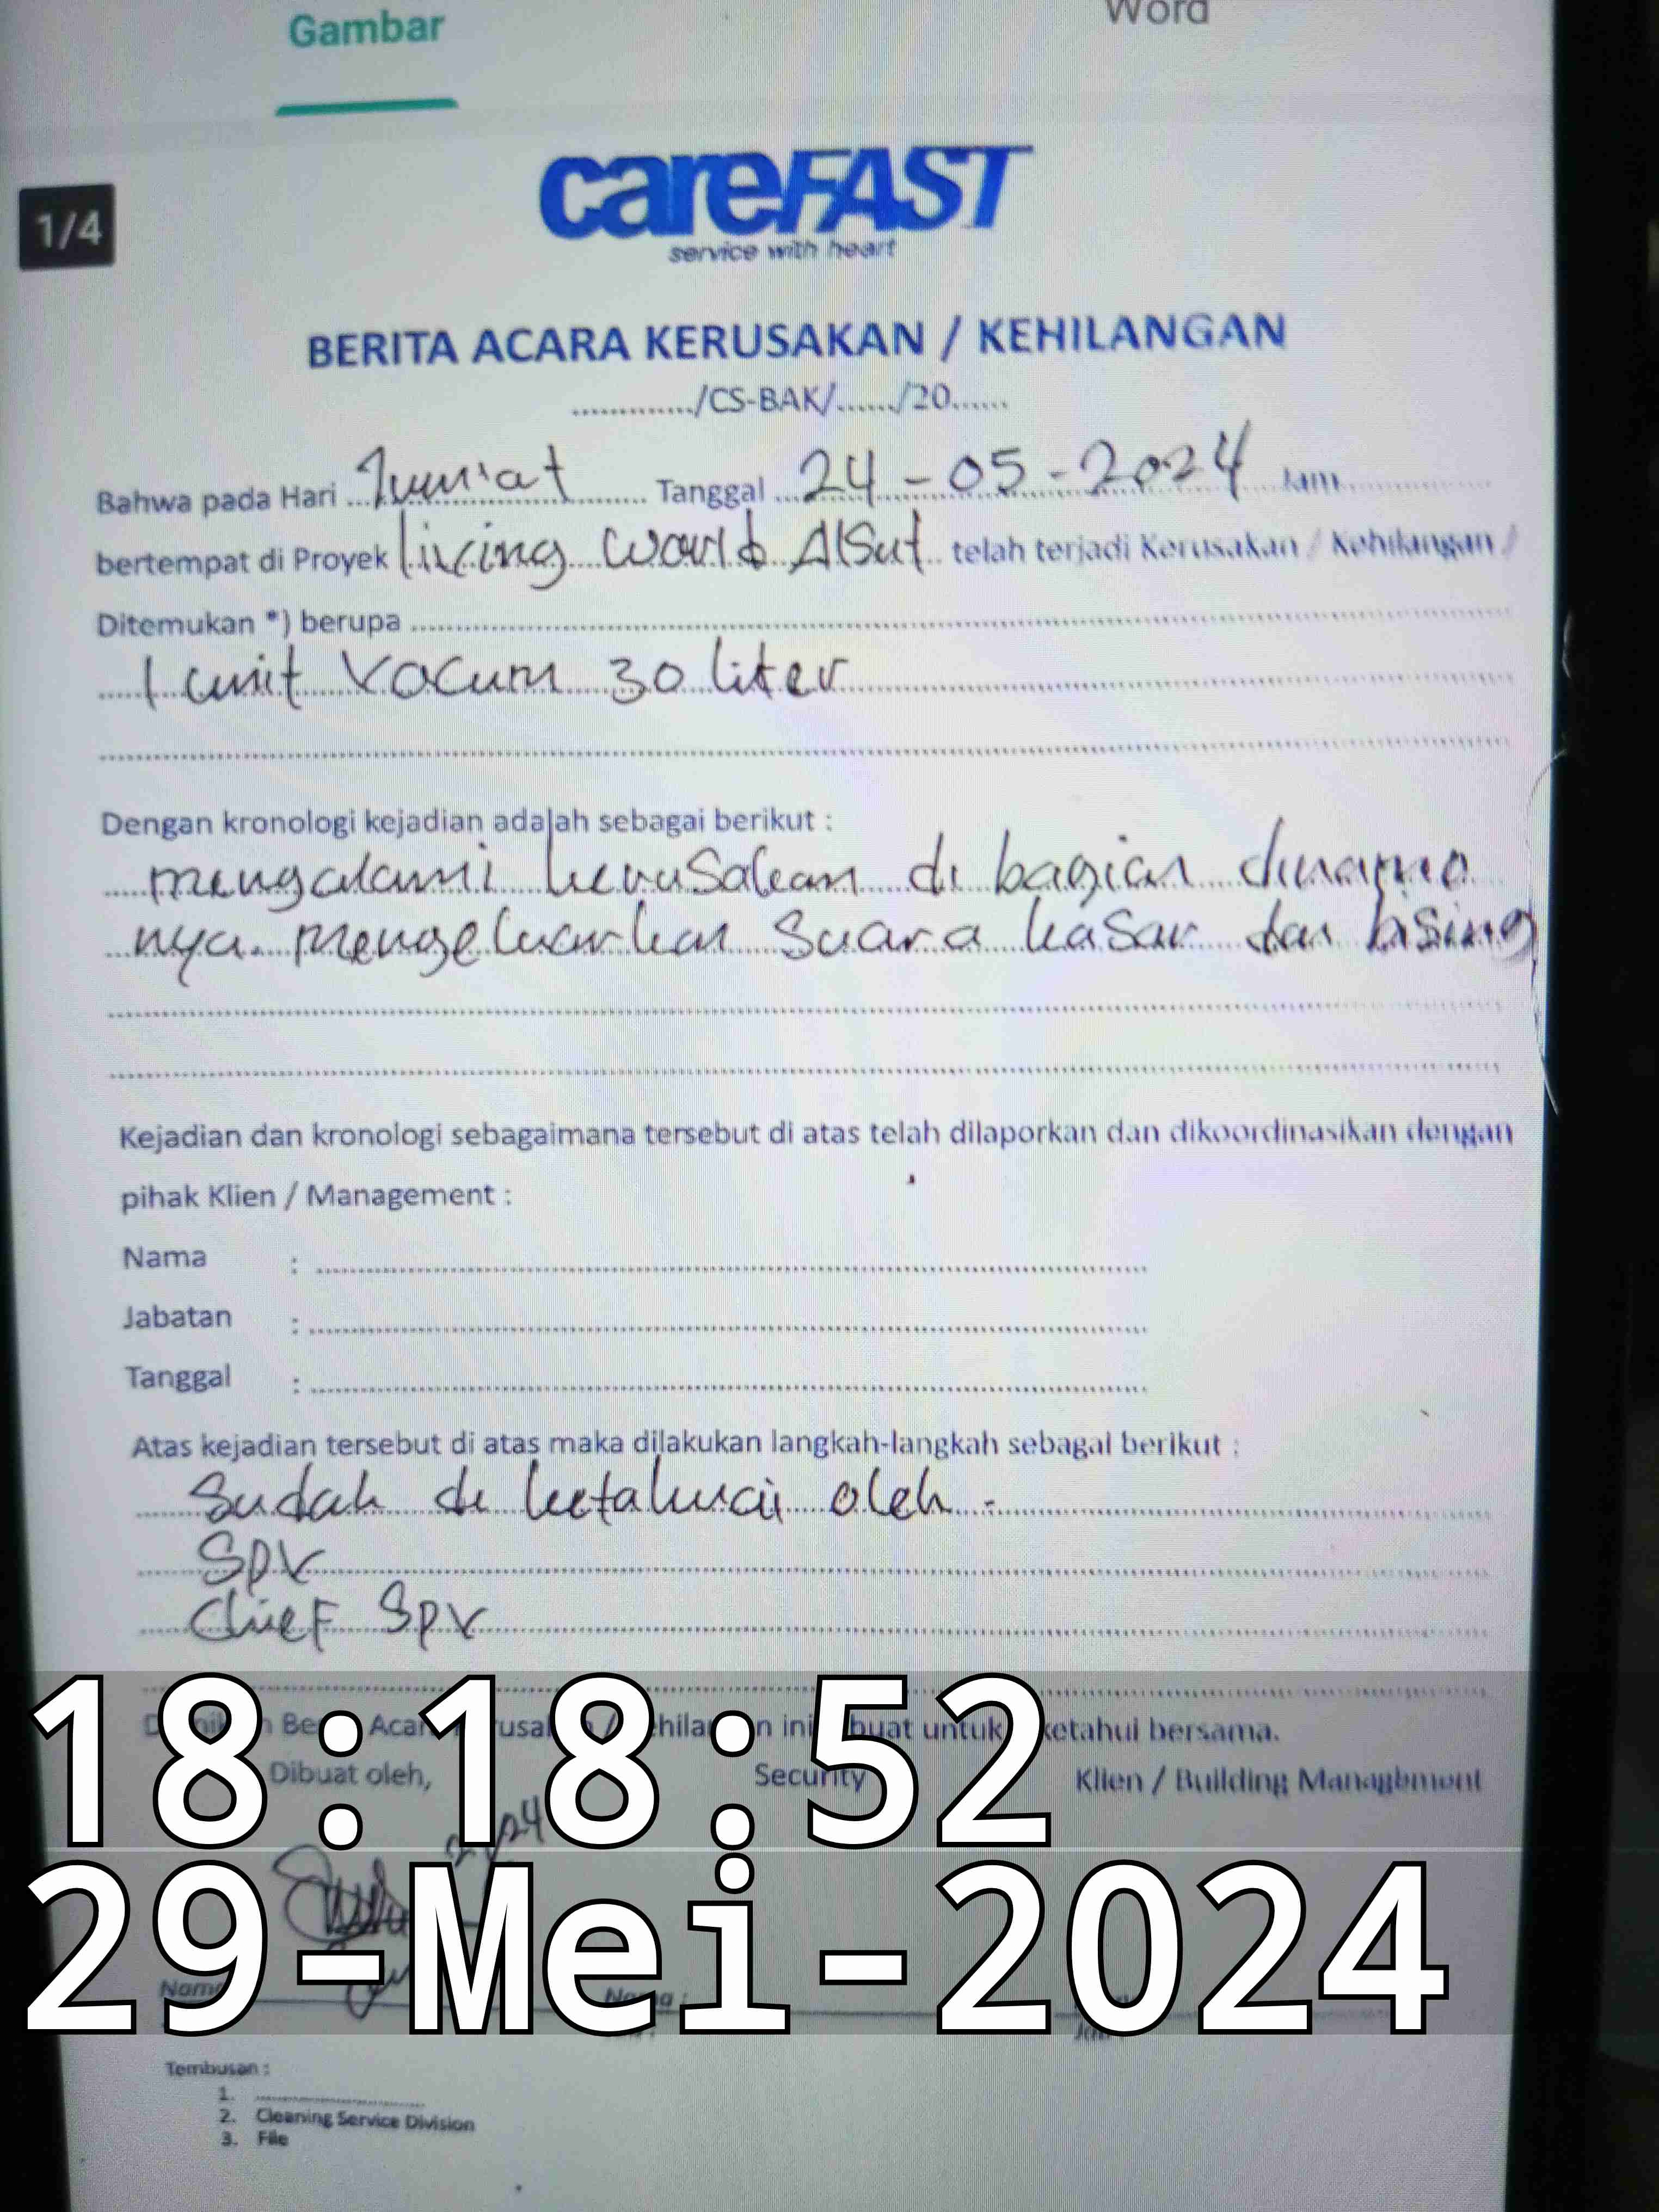 Gambar
Word
1/4
careFAST
service with heart
BERITA ACARA KERUSAKAN / KEHILANGAN
............./CS-BAK/....../20......
Bahwa pada Hari ...Jum'at........ Tanggal ...24-05-2024 Jam............
bertempat di Proyek living World Alsut.. telah terjadi Kerusakan / Kehilangan /
Ditemukan *) berupa ............................................................
1 unit Vacum 30 liter
Dengan kronologi kejadian adalah sebagai berikut :
mengalami kerusakan di bagian dinamo
nya. mengeluarkan suara kasar dan bising
Kejadian dan kronologi sebagaimana tersebut di atas telah dilaporkan dan dikoordinasikan dengan
pihak Klien / Management :
Nama : ............................................................
Jabatan : ............................................................
Tanggal : ............................................................
Atas kejadian tersebut di atas maka dilakukan langkah-langkah sebagai berikut :
Sudah di ketahui oleh :
SPV
Chief SPV
ini untuk ketahui bersama.
Dibuat oleh, Security Klien / Building Management
18:18:52
29-Mei-2024
Nama Nama :
Tembusan :
1. ............................
2. Cleaning Service Division
3. File